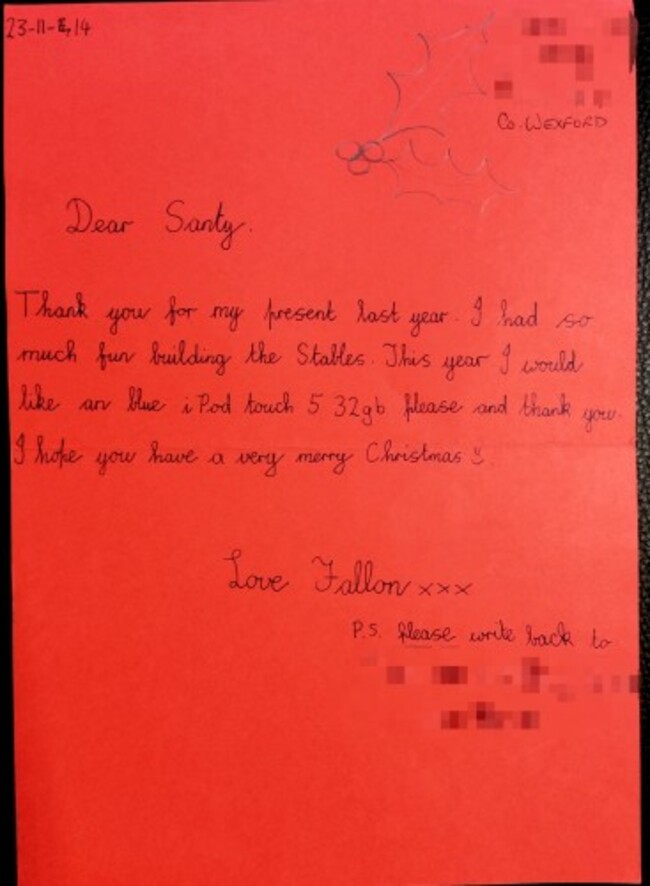 23-11-14
Co. WEXFORD
Dear Santy.
Thank you for my present last year. I had so
much fun building the Stables. This year I would
like an blue iPod touch 5 32gb please and thank you.
I hope you have a very merry Christmas
Love Fallon xxx
P.S. please write back to